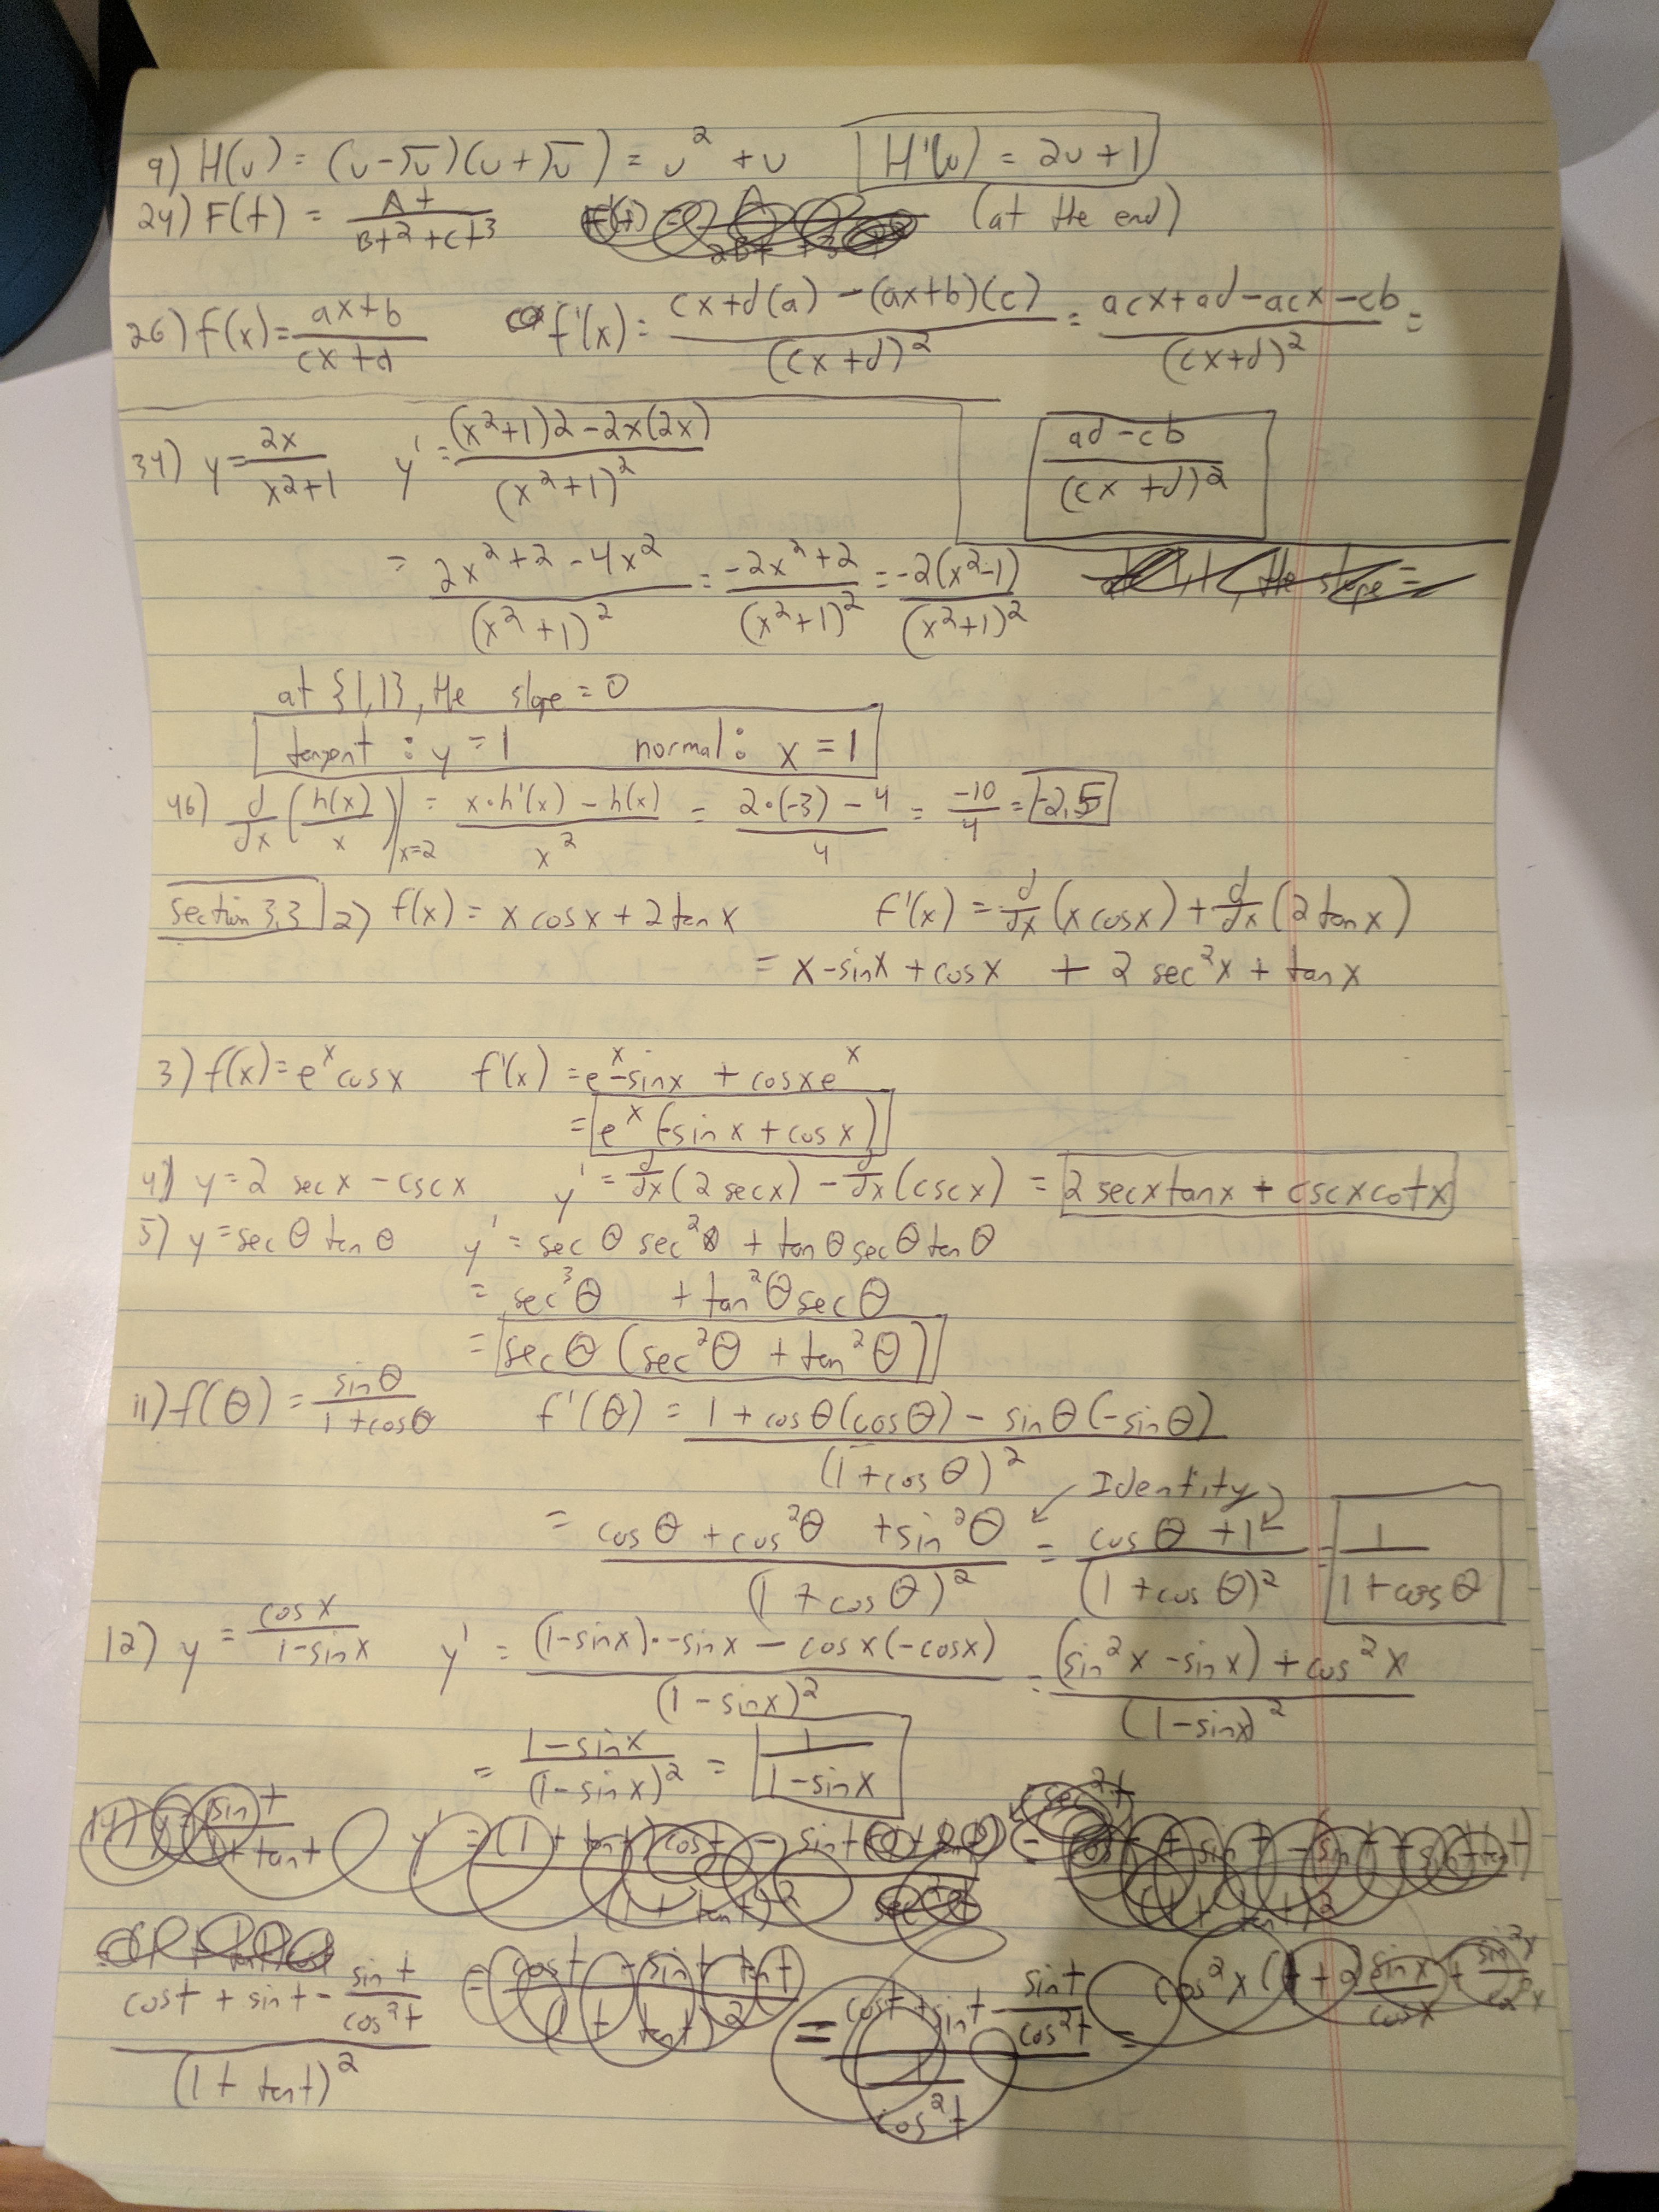 9) H(u) = (u-√u)(u+√u) = u² + u H'(u) = 2u+1
24) F(t) = At / Bt²+ct³ (at the end)
26) f(x) = ax+b / cx+d f'(x) = cx+d(a) - (ax+b)(c) / (cx+d)² = acx+ad-acx-cb / (cx+d)² =
ad-cb / (cx+d)²
34) y = 2x / x²+1 y' = (x²+1)2-2x(2x) / (x²+1)²
= 2x²+2-4x² / (x²+1)² = -2x²+2 / (x²+1)² = -2(x²-1) / (x²+1)²
at {1,1}, the slope = 0
tangent : y = 1 normal : x = 1
46) d/dx (h(x)/x)|x=2 = x·h'(x) - h(x) / x² = 2·(-3) - 4 / 4 = -10/4 = -2.5
section 3.3 2) f(x) = x cosx + 2 tan x f'(x) = d/dx (x cosx) + d/dx (2 tan x)
= x-sinx + cosx + 2 sec²x + tan x
3) f(x) = eˣ cosx f'(x) = eˣ-sinx + cosxeˣ
= eˣ(-sin x + cos x)
4) y = 2 secx - cscx y' = d/dx (2 secx) - d/dx (cscx) = 2 secxtanx + cscxcotx
5) y = sec θ tan θ y' = sec θ sec²θ + tan θ sec θ tan θ
= sec³θ + tan²θ sec θ
= sec θ (sec²θ + tan²θ)
11) f(θ) = sinθ / 1+cosθ f'(θ) = 1+cosθ(cosθ) - sinθ(-sinθ) / (1+cosθ)²
Identity
= cosθ + cos²θ + sin²θ / (1+cosθ)² = cosθ+1 / (1+cosθ)² = 1 / 1+cosθ
12) y = cosx / 1-sinx y' = (1-sinx)·-sinx - cosx(-cosx) / (1-sinx)² = (sin²x - sinx) + cos²x / (1-sinx)²
= 1-sinx / (1-sinx)² = 1 / 1-sinx
cost + sint - sint/cos²t / (1+tant)²